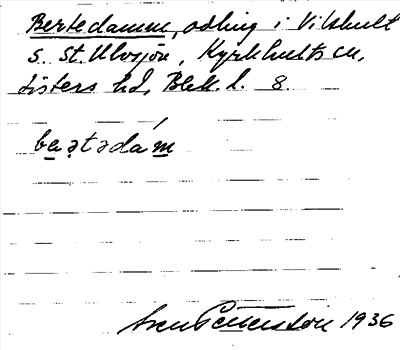 Bertedamm, odling i Vilshult
s. St. Ulvsjön, Kyrkhults sn,
Listers hd, Blek. l. 8.
bea̠ṭədám̠
Sven Petersson 1936